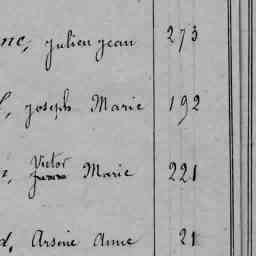 nc, Julien Jean 273
, Joseph Marie 192
Victor
, Marie 221
d, Arsène Anne 21